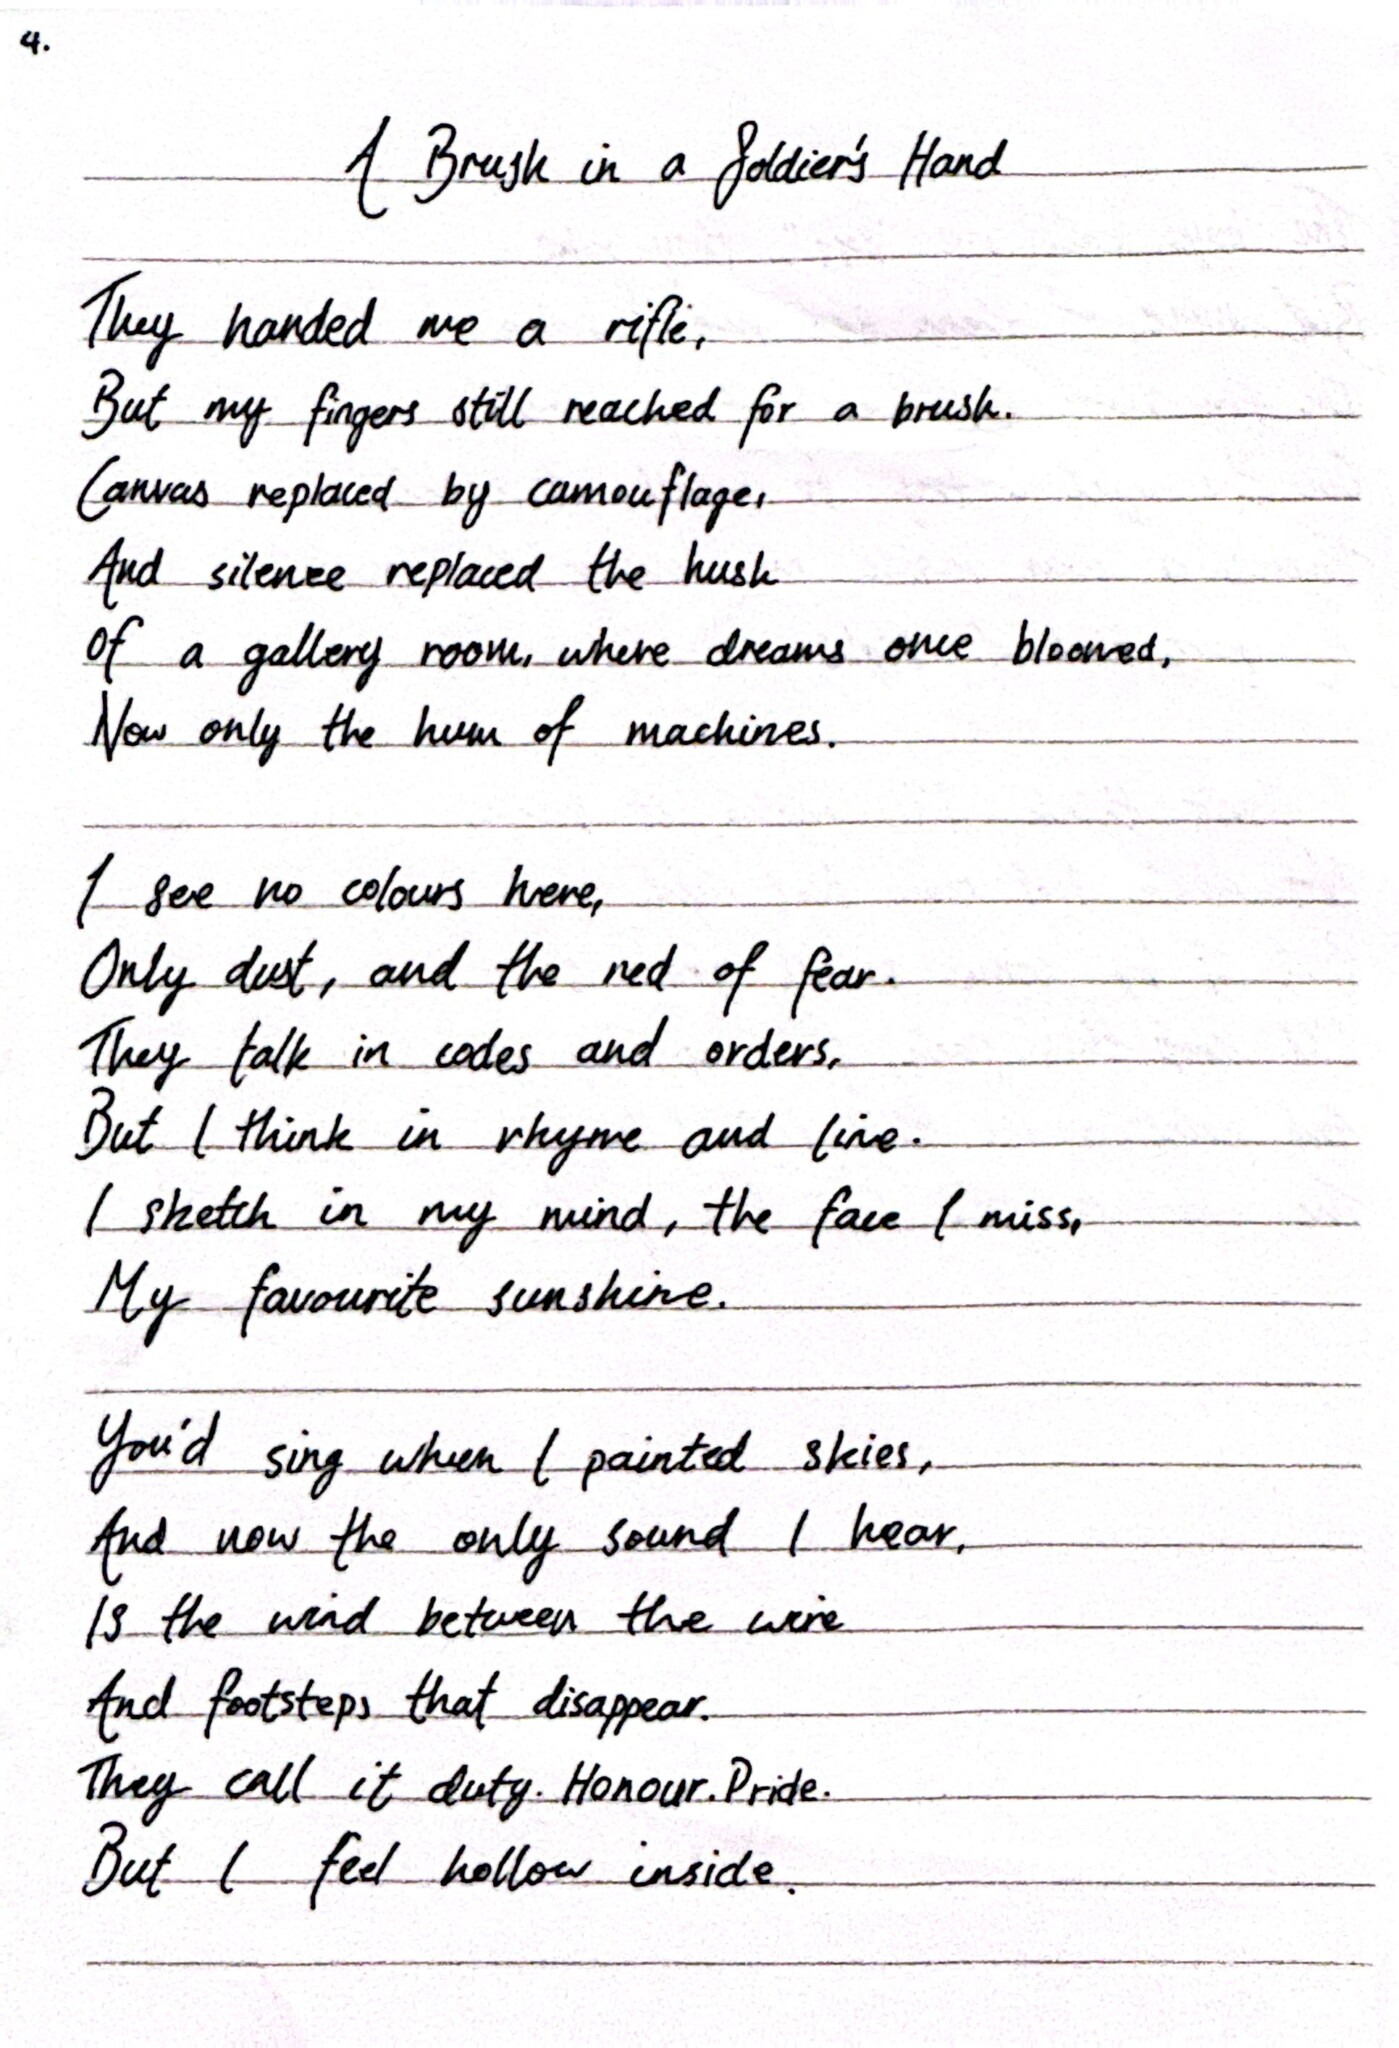 4.
A Brush in a Soldier's Hand
They handed me a rifle,
But my fingers still reached for a brush.
Canvas replaced by camouflage,
And silence replaced the hush
Of a gallery room, where dreams once bloomed,
Now only the hum of machines.
I see no colours here,
Only dust, and the red of fear.
They talk in codes and orders,
But I think in rhyme and line.
I sketch in my mind, the face I miss,
My favourite sunshine.
You'd sing when I painted skies,
And now the only sound I hear,
Is the wind between the wire
And footsteps that disappear.
They call it duty. Honour. Pride.
But I feel hollow inside.